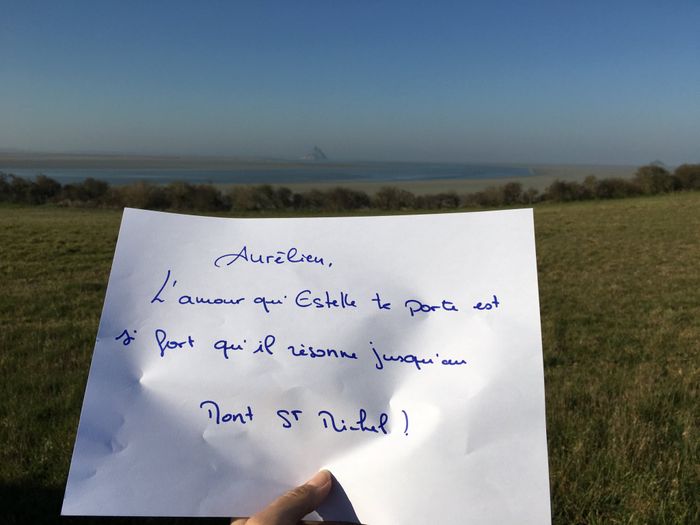 Aurélien,
L'amour qu'Estelle te porte est
si fort qu'il résonne jusqu'au
Mont St Michel !